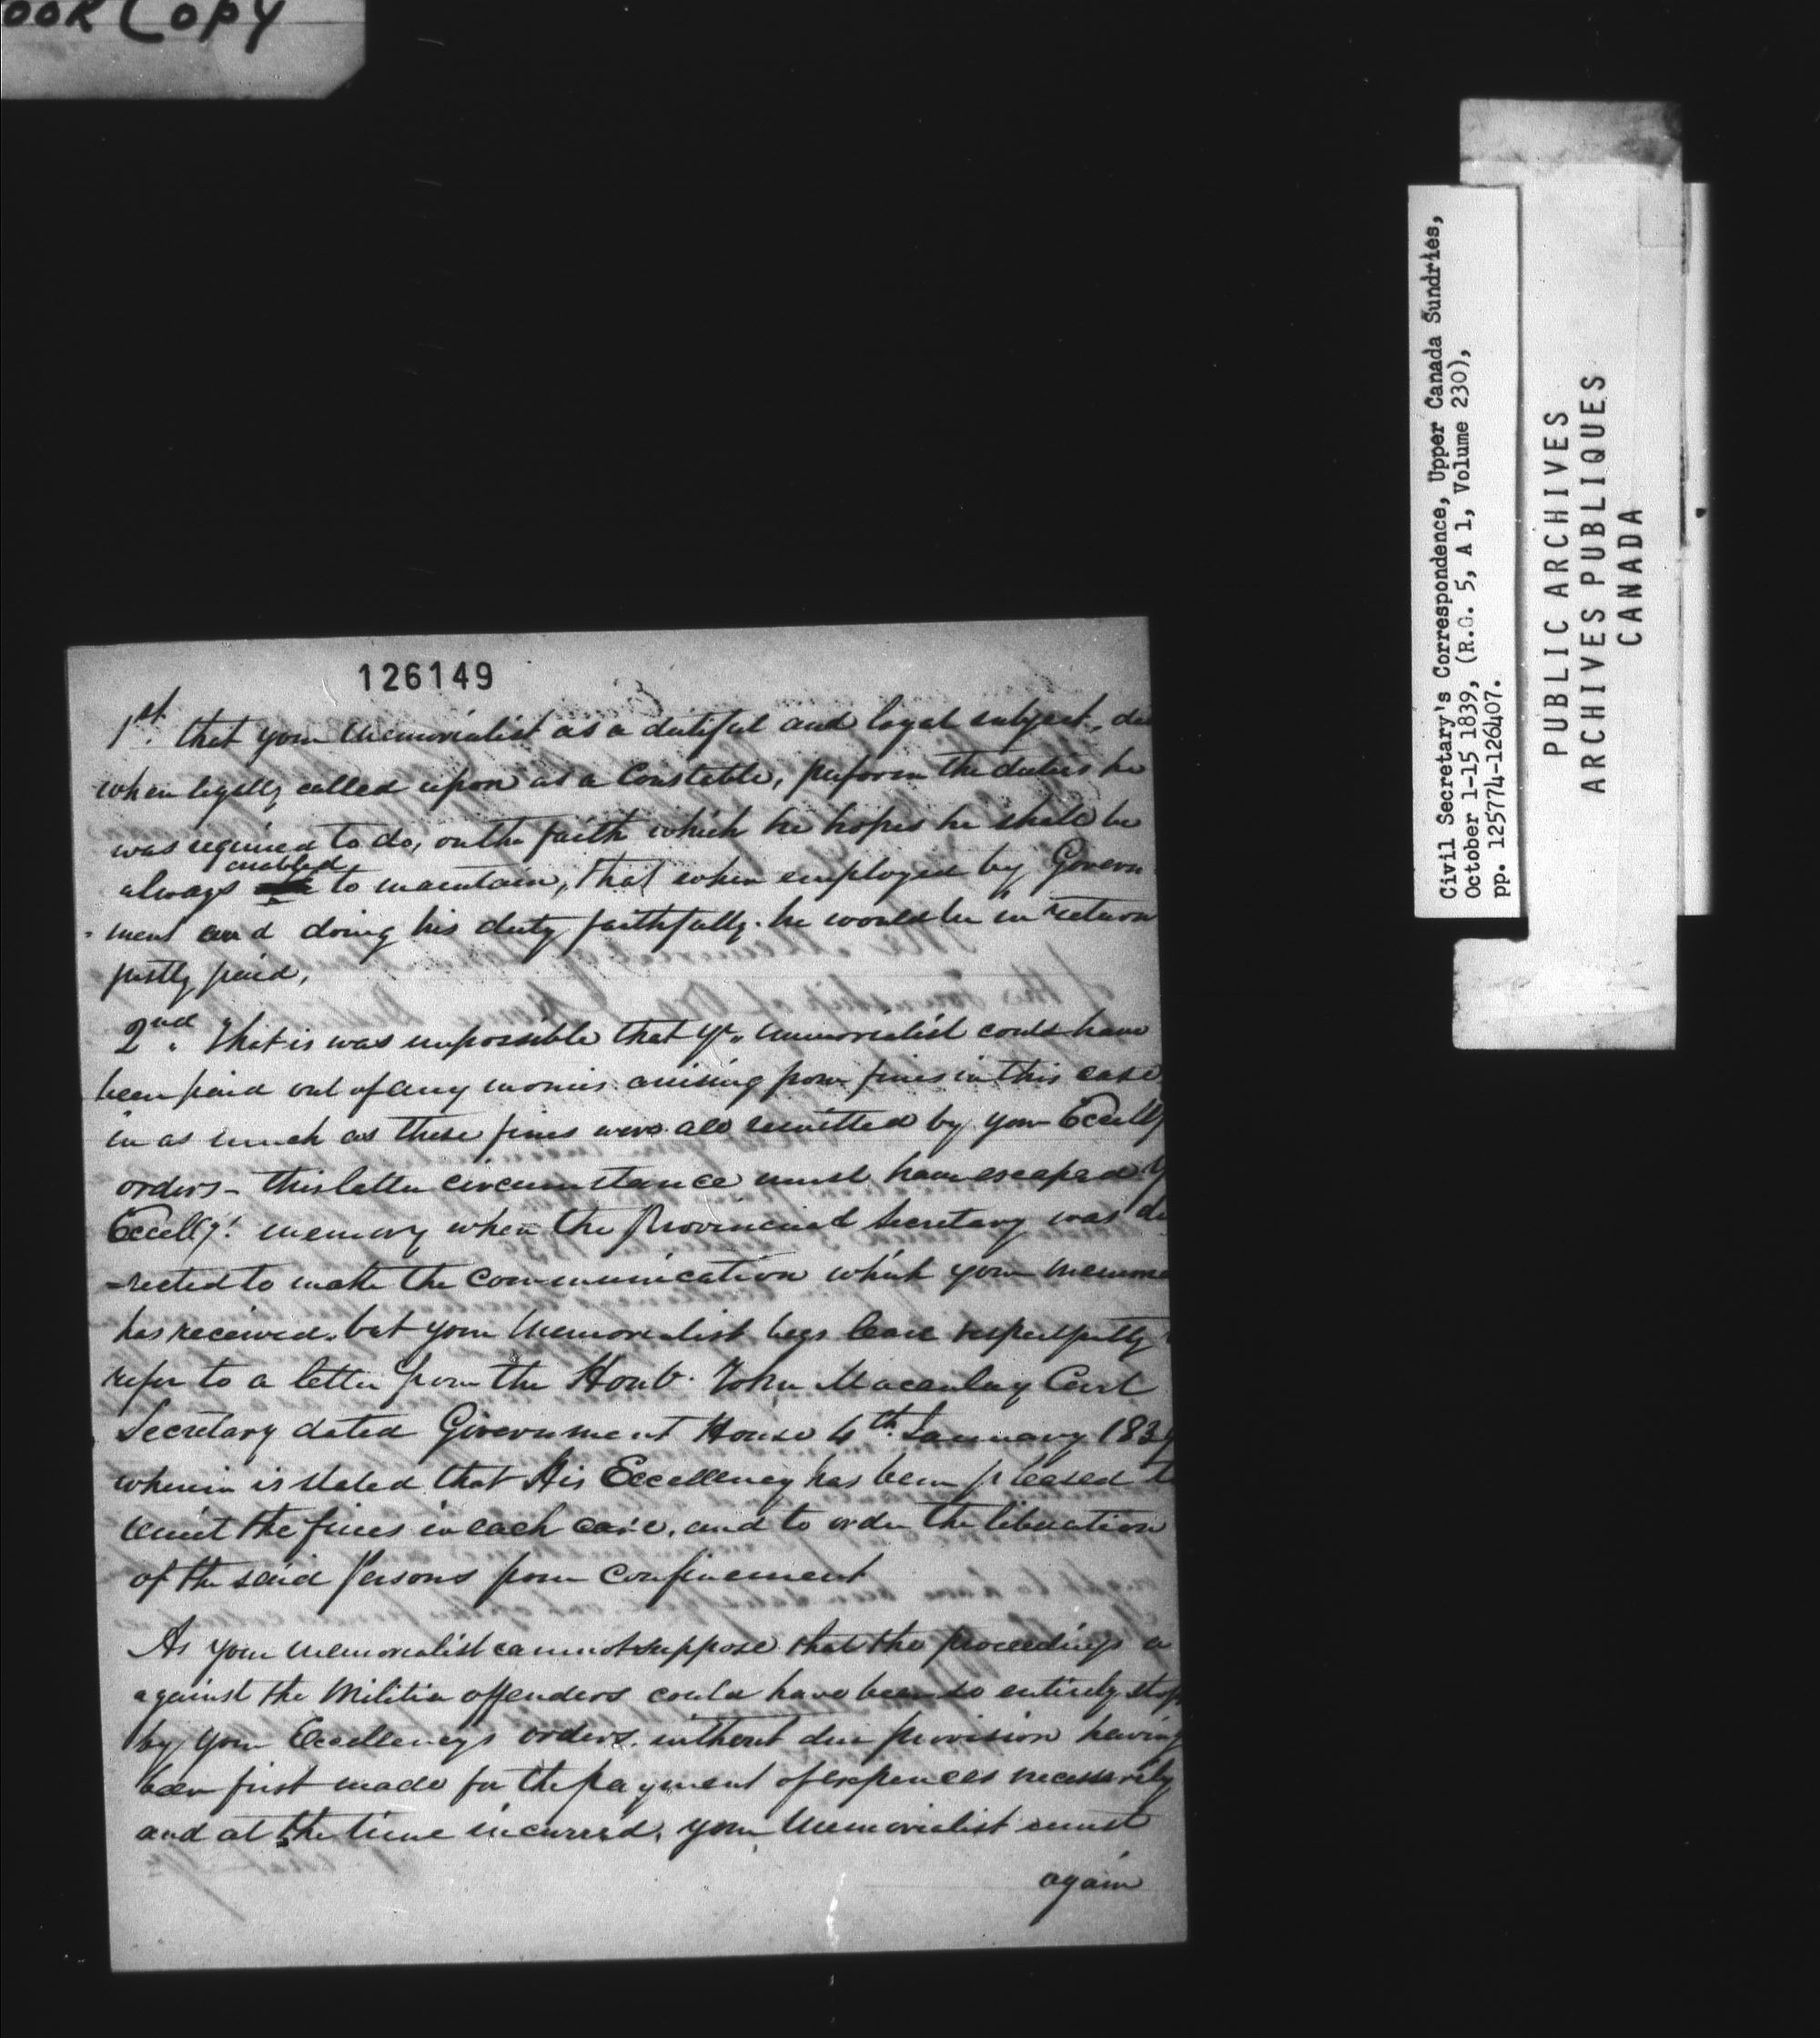 ook Copy
126149
1st. that your Memorialist as a dutiful and loyal subject, di
when legally called upon as a Constable, perform the duties he
was required to do, on the faith which he hopes he shall be
enabled
always to maintain, that when employed by Govern
- ment and doing his duty faithfully. he would be in return
justly paid,
2nd. That is was impossible that Yr. Memorialist could have
been paid out of any monies arising from fines in this case
in as much as these fines were all remitted by your Excelly
orders - this latter circumstance must have escaped Y
Excelly! memory when the Provincial Secretary was di
=rected to make the communication which your Memori
has received. but your Memorialist begs leave respectfully
refer to a letter from the Honb. John Macaulay Civil
Secretary dated Government House 4th January 1839
wherein is stated that His Excellency has been pleased t
remit the fines in each case, and to order the liberation
of the said Persons from Confinement
As your Memorialist cannot suppose that the proceedings a
against the Militia offenders could have been so entirely stop
by your Excellencys orders. without due provision having
been first made for the payment of expences necessarily
and at the time incurred, your Memorialist must
again
Civil Secretary's Correspondence, Upper Canada Sundries,
October 1-15 1839, (R.G. 5, A 1, Volume 230),
pp. 125774-126407.
PUBLIC ARCHIVES
ARCHIVES PUBLIQUES
CANADA